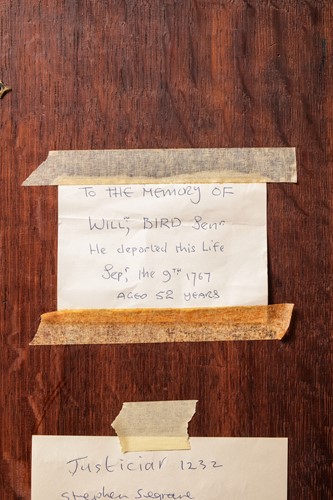 TO THE MEMORY OF
WILLᵐ BIRD Senʳ
He departed this Life
Sepᵗ the 9ᵀᴴ 1767
AGED 52 YEARS
Justiciar 1232
Stephen Segrave